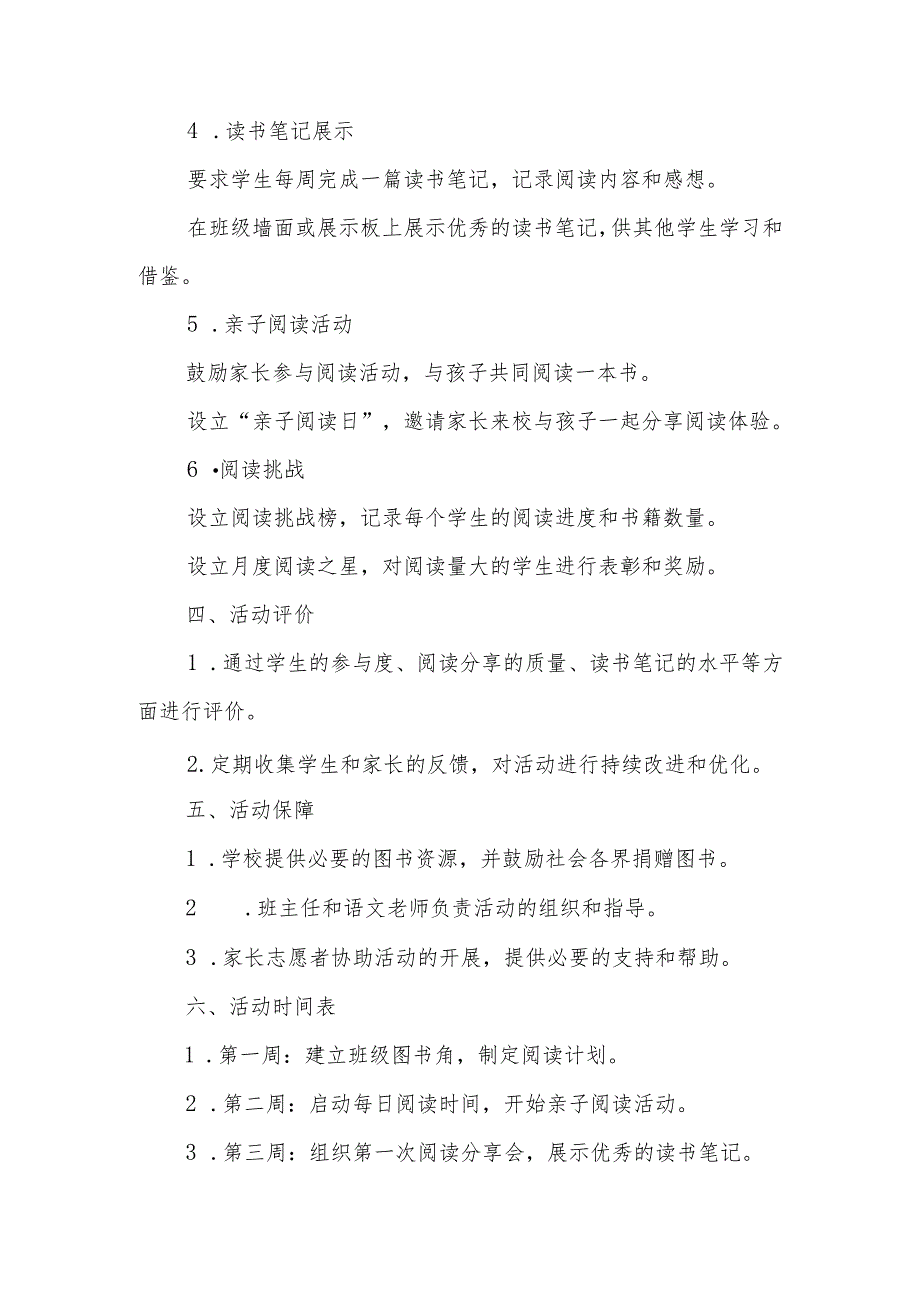 4 .读书笔记展示
要求学生每周完成一篇读书笔记，记录阅读内容和感想。
在班级墙面或展示板上展示优秀的读书笔记，供其他学生学习和
借鉴。
5 .亲子阅读活动
鼓励家长参与阅读活动，与孩子共同阅读一本书。
设立“亲子阅读日”，邀请家长来校与孩子一起分享阅读体验。
6 •阅读挑战
设立阅读挑战榜，记录每个学生的阅读进度和书籍数量。
设立月度阅读之星，对阅读量大的学生进行表彰和奖励。
四、活动评价
1 .通过学生的参与度、阅读分享的质量、读书笔记的水平等方
面进行评价。
2.定期收集学生和家长的反馈，对活动进行持续改进和优化。
五、活动保障
1 .学校提供必要的图书资源，并鼓励社会各界捐赠图书。
2 .班主任和语文老师负责活动的组织和指导。
3 .家长志愿者协助活动的开展，提供必要的支持和帮助。
六、活动时间表
1 .第一周：建立班级图书角，制定阅读计划。
2 .第二周：启动每日阅读时间，开始亲子阅读活动。
3 .第三周：组织第一次阅读分享会，展示优秀的读书笔记。